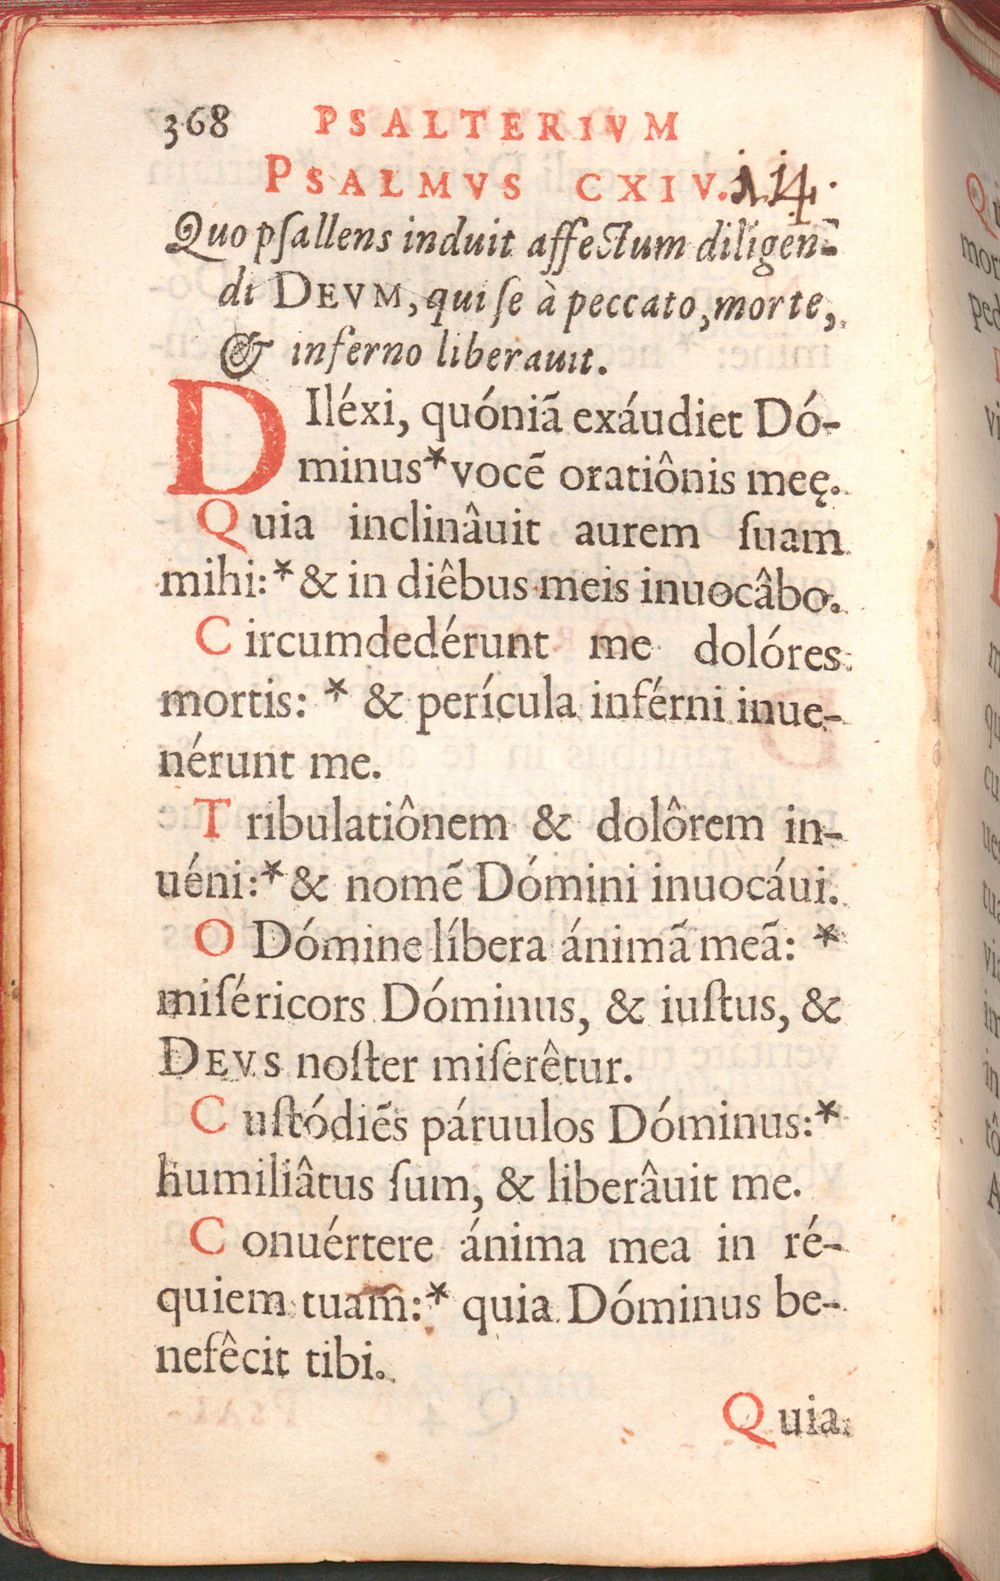 368 PSALTERIVM
PSALMVS CXIV. 114.
Quo pſallens induit affectum diligen-
di DEVM, qui ſe à peccato, morte,
& inferno liberauit.
DIléxi, quóniã exáudiet Dó-
minus * vocẽ oratiônis meę.
Quia inclinâuit aurem ſuam
mihi: * & in diêbus meis inuocâbo.
Circumdedérunt me dolóres
mortis: * & perícula inférni inue-
nérunt me.
Tribulatiônem & dolôrem in-
uéni: * & nomẽ Dómini inuocáui.
O Dómine líbera ánimã meã: *
miſéricors Dóminus, & iuſtus, &
DEVS noſter miſerêtur.
Cuſtódiẽs páruulos Dóminus: *
humiliâtus ſum, & liberâuit me.
Conuértere ánima mea in ré-
quiem tuam: * quia Dóminus be-
nefêcit tibi.
Quia